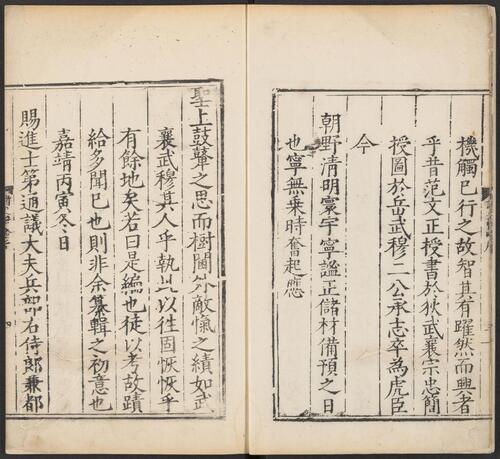 機觸已行之故智其有躍然而興者
乎昔范文正授書於狄武襄宗忠簡
授圖於岳武穆二公承志卒為虎臣
今
朝野清明寰宇寧謐正儲材備預之日
也寧無乗時奮起應
聖上鼓鼙之思而樹閫外敵愾之績如武
襄武穆其人乎執此以往固恢恢乎
有餘地矣若曰是編也徒以考故蹟
給多聞已也則非余纂輯之初意也
嘉靖丙寅冬日
賜進士第通議大夫兵部右侍郎兼都
四